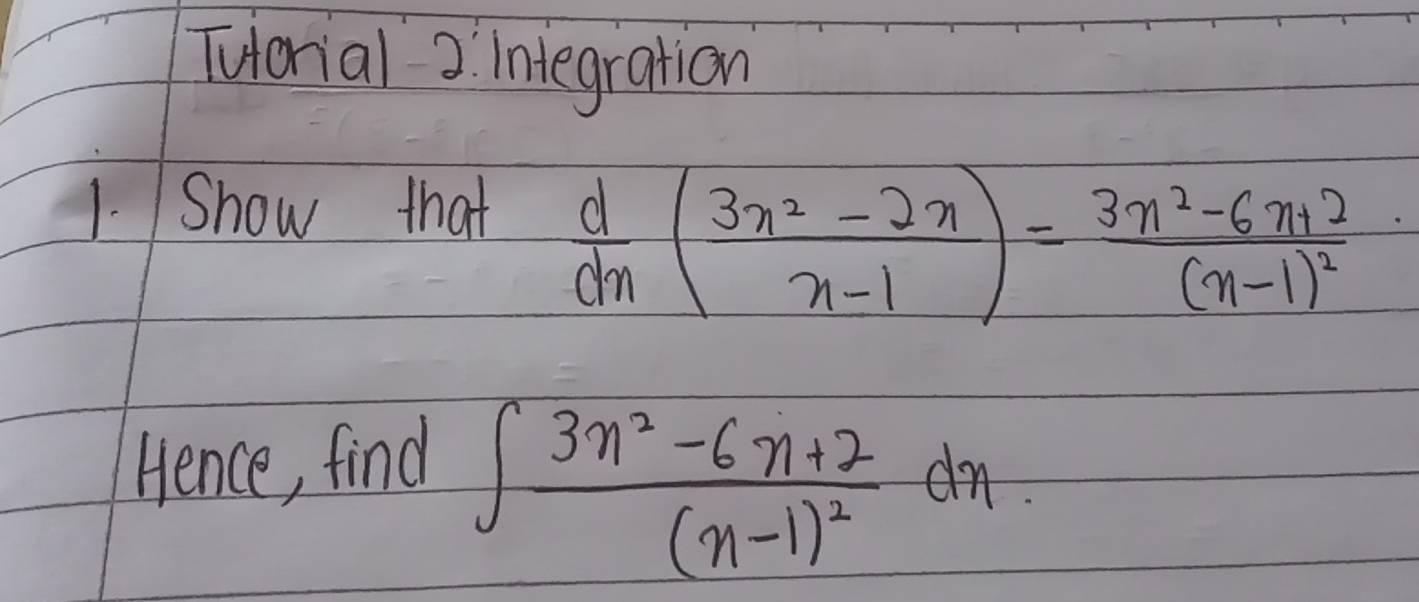 Tutorial 2: Integration
1. Show that d/dx ( (3x² - 2x) / (x-1) ) = (3x² - 6x + 2) / (x-1)².
Hence, find ∫ (3x² - 6x + 2) / (x-1)² dx.